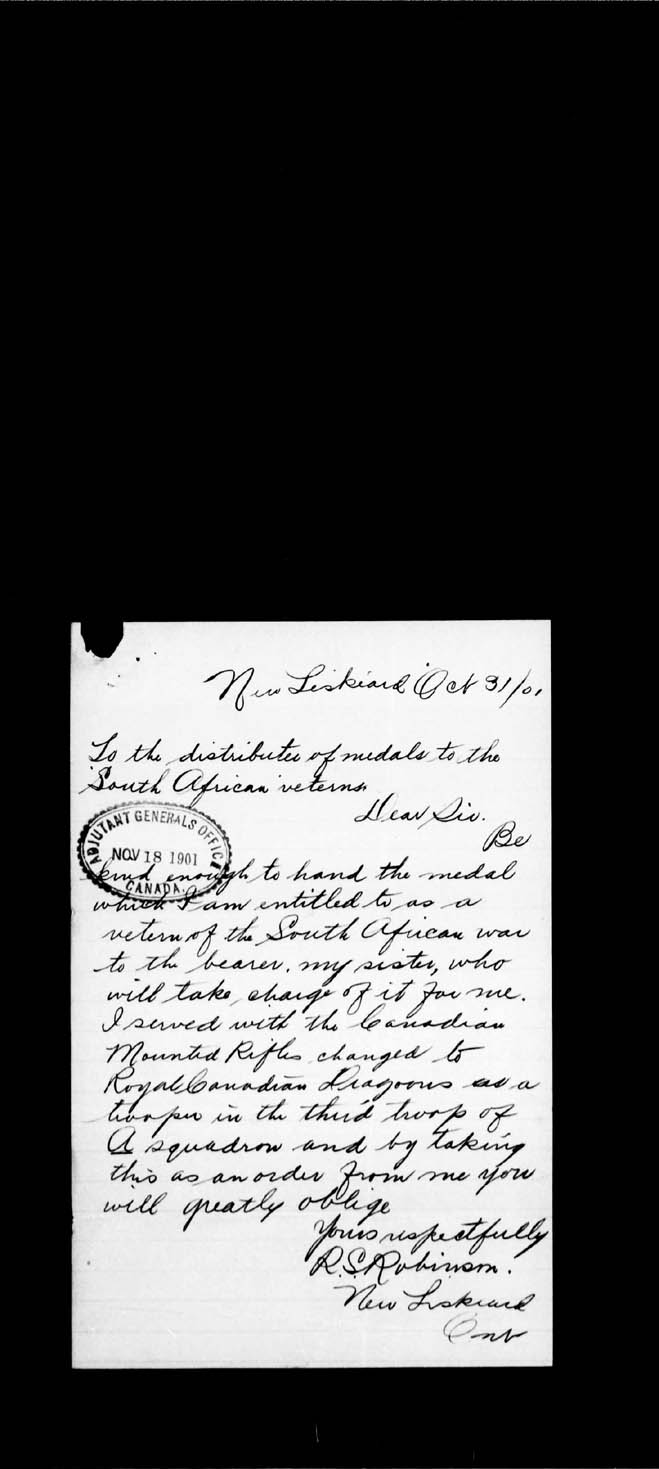 New Liskeard Oct 31/01
To the distributer of medals to the
South African veterns
Dear Sir.
Be
ADJUTANT GENERALS OFFICE
NOV 18 1901
CANADA.
kind enough to hand the medal
which I am entitled to as a
vetern of the South African war
to the bearer. my sister, who
will take charge of it for me.
I served with the Canadian
Mounted Rifles changed to
Royal Canadian Dragoons as a
trooper in the third troop of
A squadron and by taking
this as an order from me you
will greatly oblige
Yours respectfully
R.S. Robinson.
New Liskeard
Ont